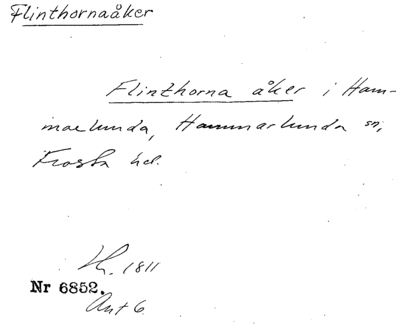 Flinthornaåker
Flinthorna åker i Ham-
marlunda, Hammarlunda sn,
Frosta hd.
Lh. 1811
Nr 6852.
Ant 6.